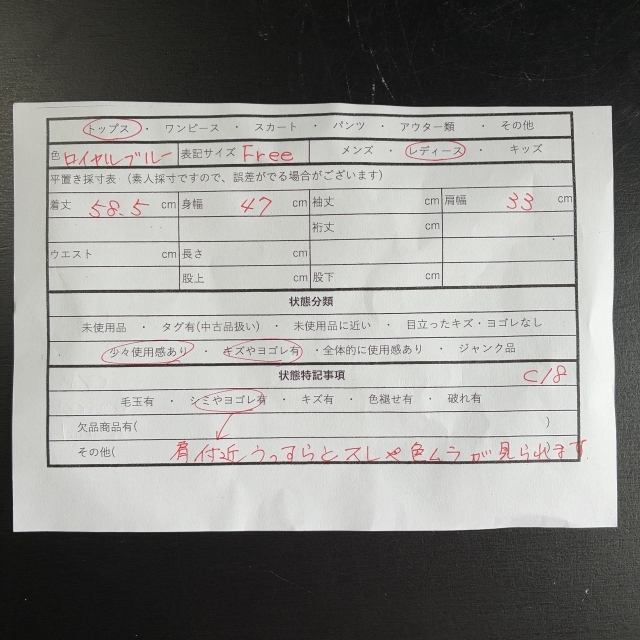 トップス ・ ワンピース ・ スカート ・ パンツ ・ アウター類 ・ その他
色 ロイヤルブルー 表記サイズ Free メンズ ・ レディース ・ キッズ
平置き採寸表 (素人採寸ですので、誤差がでる場合がございます)
着丈 58.5 cm 身幅 47 cm 袖丈 cm 肩幅 33 cm
裄丈 cm
ウエスト cm 長さ cm
股上 cm 股下 cm
状態分類
未使用品 ・ タグ有(中古品扱い) ・ 未使用品に近い ・ 目立ったキズ・ヨゴレなし
・ 少々使用感あり ・ キズやヨゴレ有 ・全体的に使用感あり ・ ジャンク品
状態特記事項 C18
毛玉有 ・ シミやヨゴレ有 ・ キズ有 ・ 色褪せ有 ・ 破れ有
欠品商品有( )
その他( 肩付近うっすらとスレや色ムラが見られます